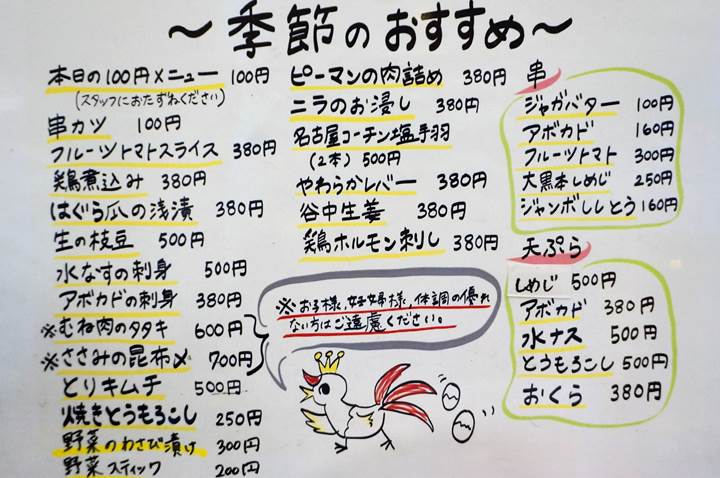 ～季節のおすすめ～
本日の100円メニュー 100円
(スタッフにおたずねください)
串カツ 100円
フルーツトマトスライス 380円
鶏煮込み 380円
はぐら瓜の浅漬 380円
生の枝豆 500円
水なすの刺身 500円
アボカドの刺身 380円
※むね肉のタタキ 600円
※ささみの昆布〆 700円
とりキムチ 500円
焼きとうもろこし 250円
野菜のわさび漬け 300円
野菜スティック 200円
ピーマンの肉詰め 380円
ニラのお浸し 380円
名古屋コーチン塩手羽
(2本) 500円
やわらかレバー 380円
谷中生姜 380円
鶏ホルモン刺し 380円
※お子様,妊婦様,体調の優れ
ない方はご遠慮ください。
串
ジャガバター 100円
アボカド 160円
フルーツトマト 300円
大黒本しめじ 250円
ジャンボししとう 160円
天ぷら
しめじ 500円
アボカド 380円
水ナス 500円
とうもろこし 500円
おくら 380円